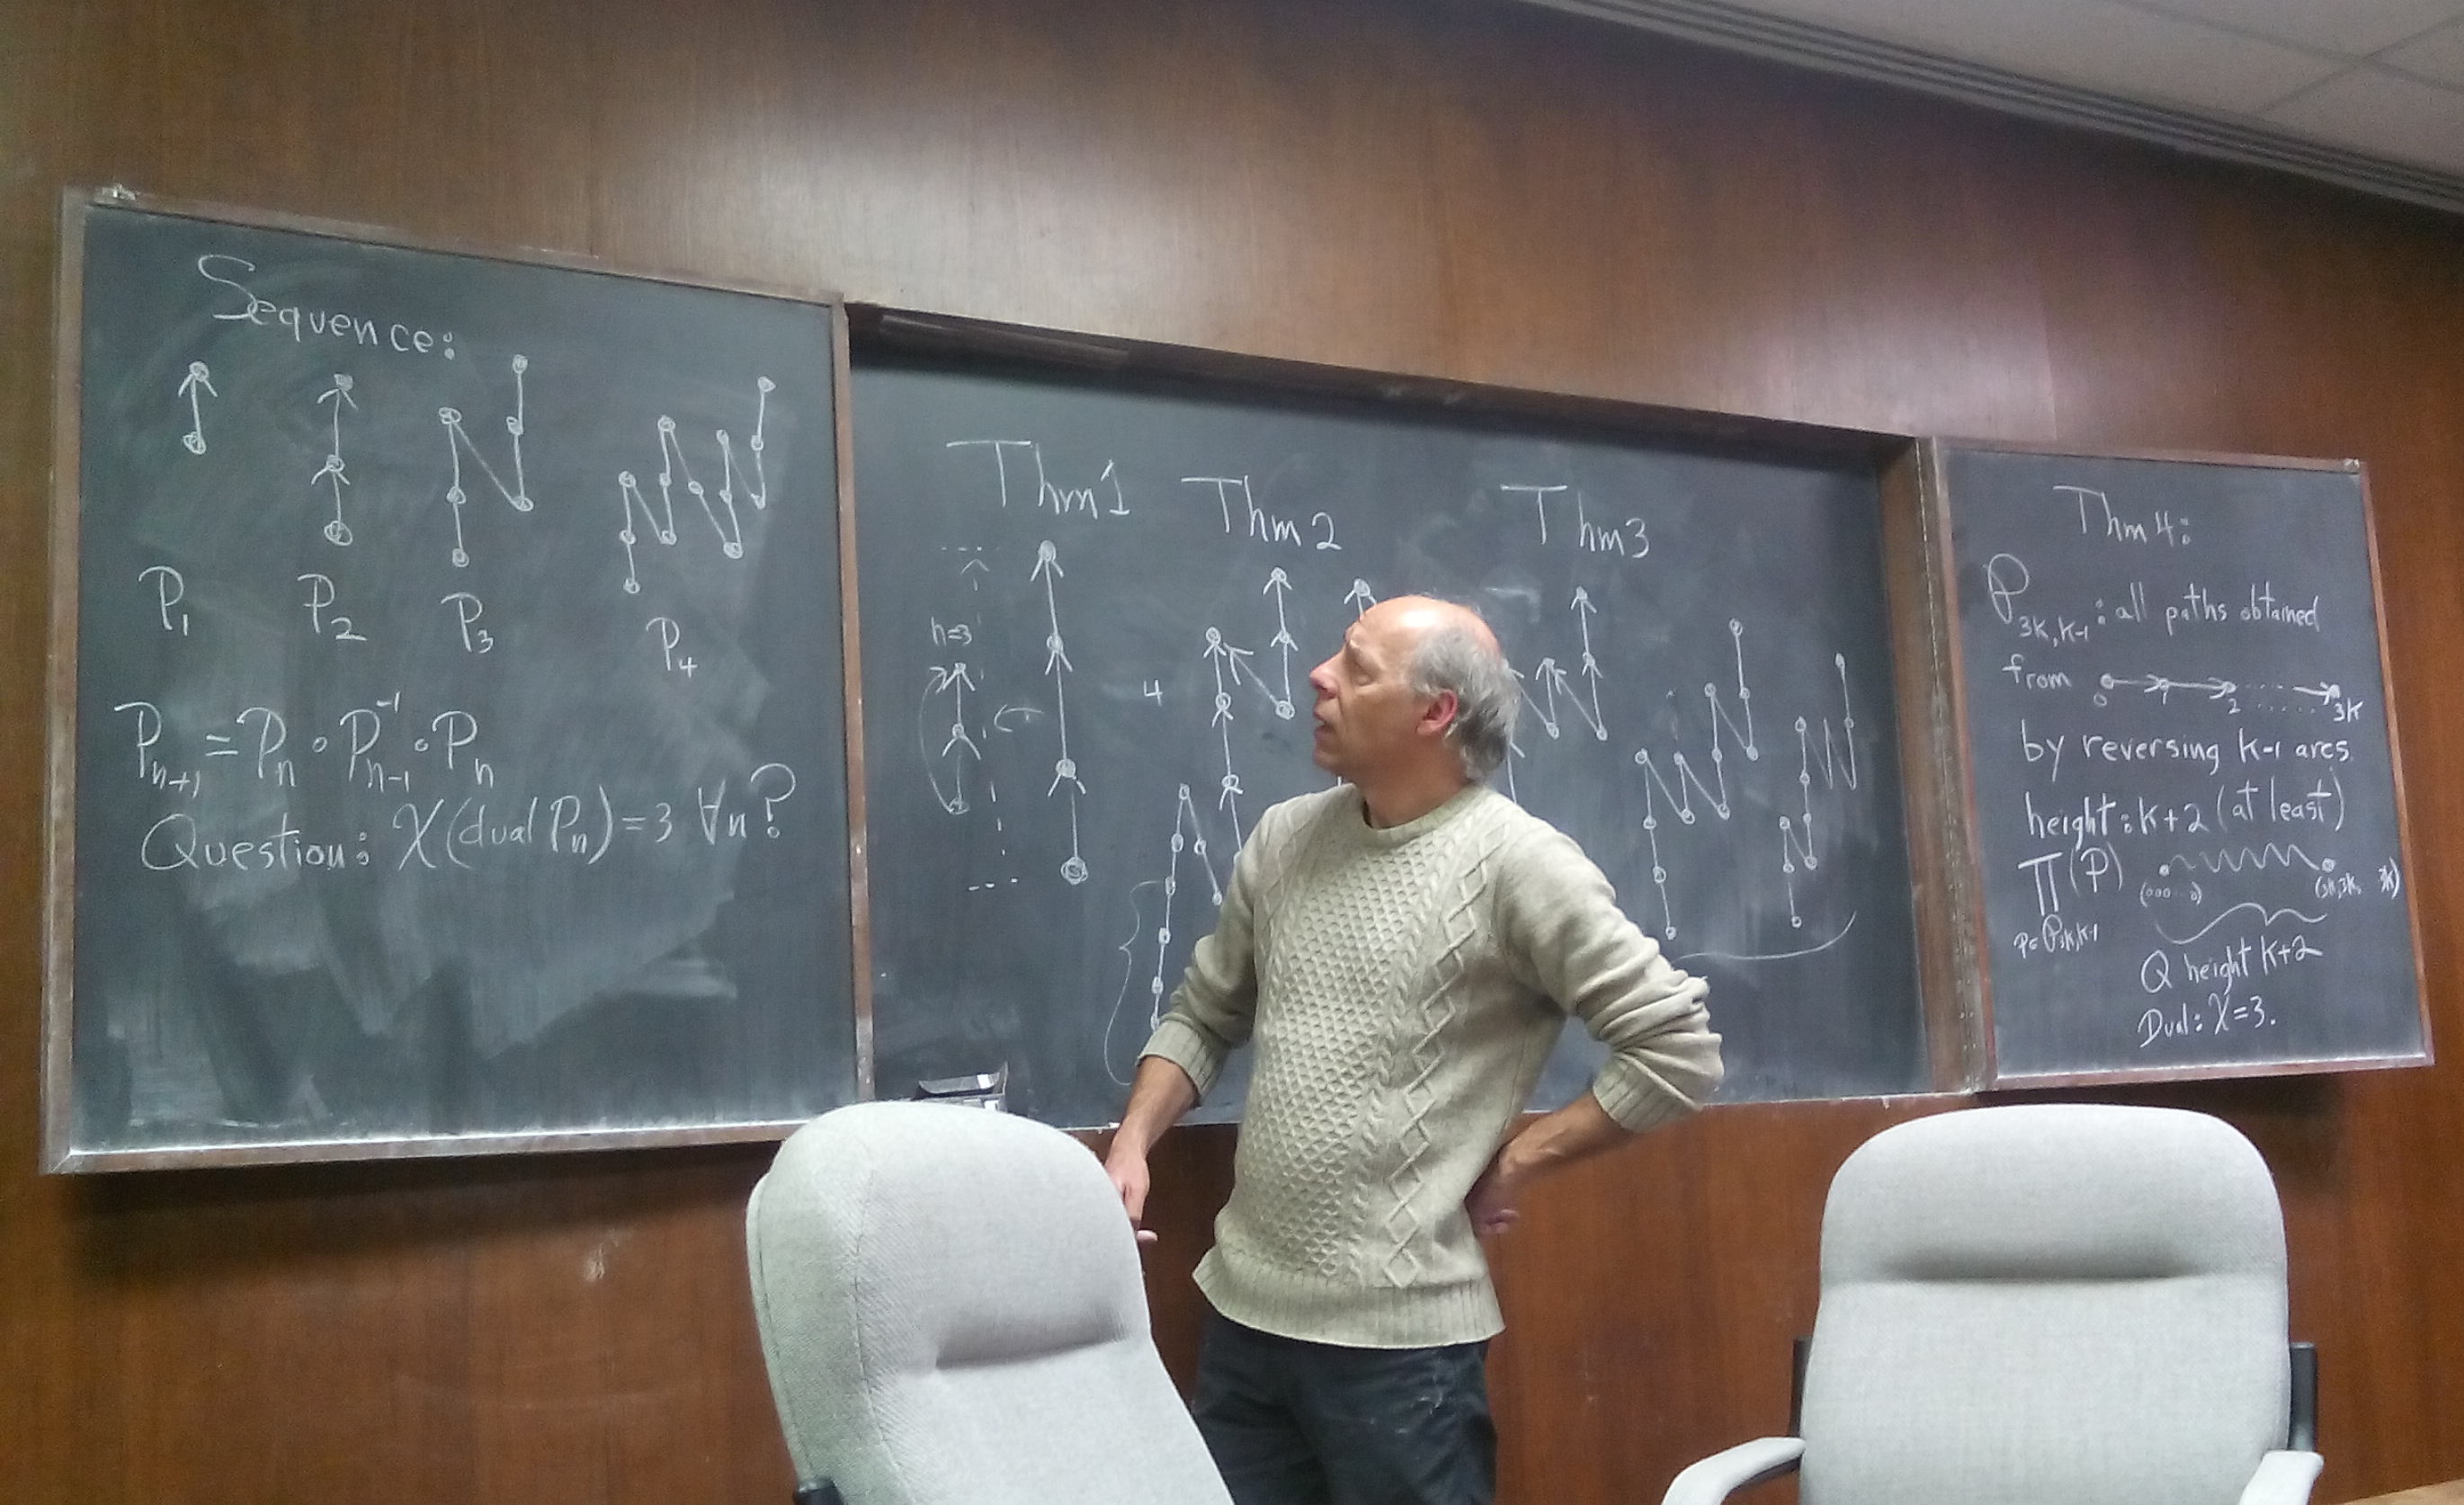 Sequence:
P₁ P₂ P₃ P₄
Pₙ₊₁ = Pₙ ∘ Pₙ₋₁⁻¹ ∘ Pₙ
Question: χ(dual Pₙ) = 3 ∀n?
Thm 1
h=3
Thm 2
4
Thm 3
Thm 4:
P₃ₖ,ₖ₋₁: all paths obtained
from 0 1 2 ..... 3k
by reversing k-1 arcs
height: k+2 (at least)
∏(P) (000...0) (3k,3k, 3k)
P∈P₃ₖ,ₖ₋₁
Q height k+2
Dual: χ=3.